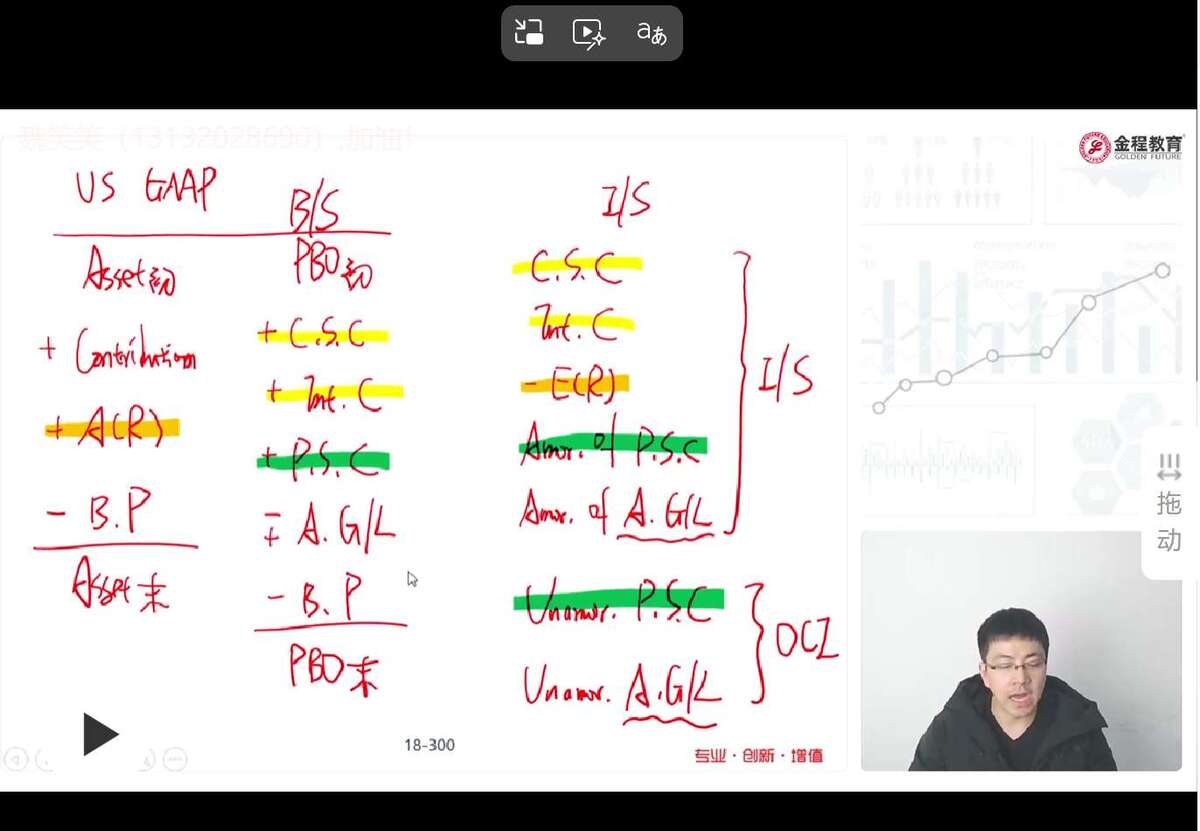 aあ
金程教育
GOLDEN FUTURE
US GAAP
B/S
Asset初
PBO初
+ Contribution
+ C.S.C
+ A(R)
+ Int. C
+ P.S.C
- B.P
∓ A. G/L
Asset末
- B.P
PBO末
I/S
C.S.C
Int. C
- E(R)
Amor. of P.S.C
Amor. of A. G/L
I/S
Unamor. P.S.C
Unamor. A.G/L
OCI
拖
动
18-300
专业·创新·增值